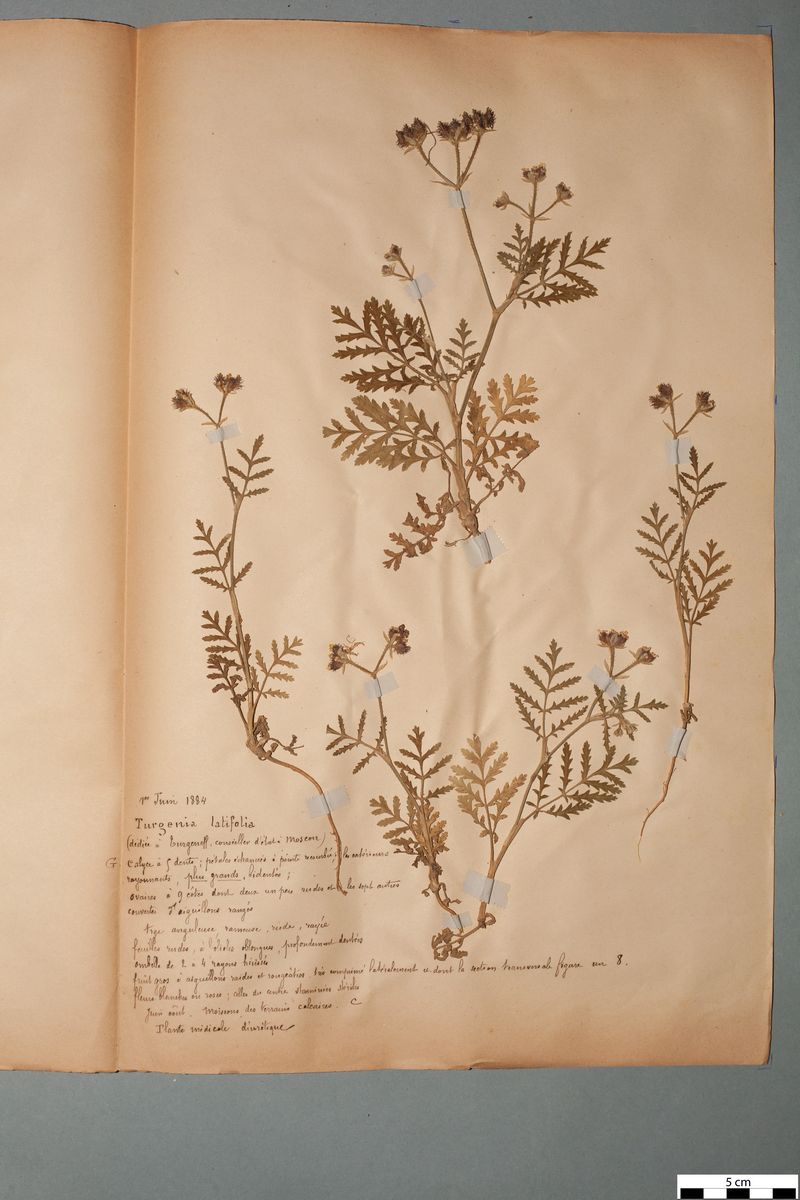 1er Juin 1884
Turgenia latifolia
(dédiée à Turgeneff, conseiller d'état à Moscou)
G. Calyce à 5 dents ; pétales échancrés à pointe recourbée ; les extérieurs
rayonnants, plus grands, bidentés ;
ovaires à 9 côtes dont deux un peu rudes et les sept autres
couvertes d'aiguillons rangés
tige anguleuse, rameuse, rude, rayée
feuilles rudes, à folioles oblongues, profondément dentées
ombelle de 2 à 4 rayons hérissés
fruit gros à aiguillons raides et rougeâtres très comprimé latéralement et dont la section transversale figure un 8.
fleurs blanches ou roses ; celles du centre staminées stériles
Juin août. Moissons des terrains calcaires. C
Plante médicale diurétique
5 cm